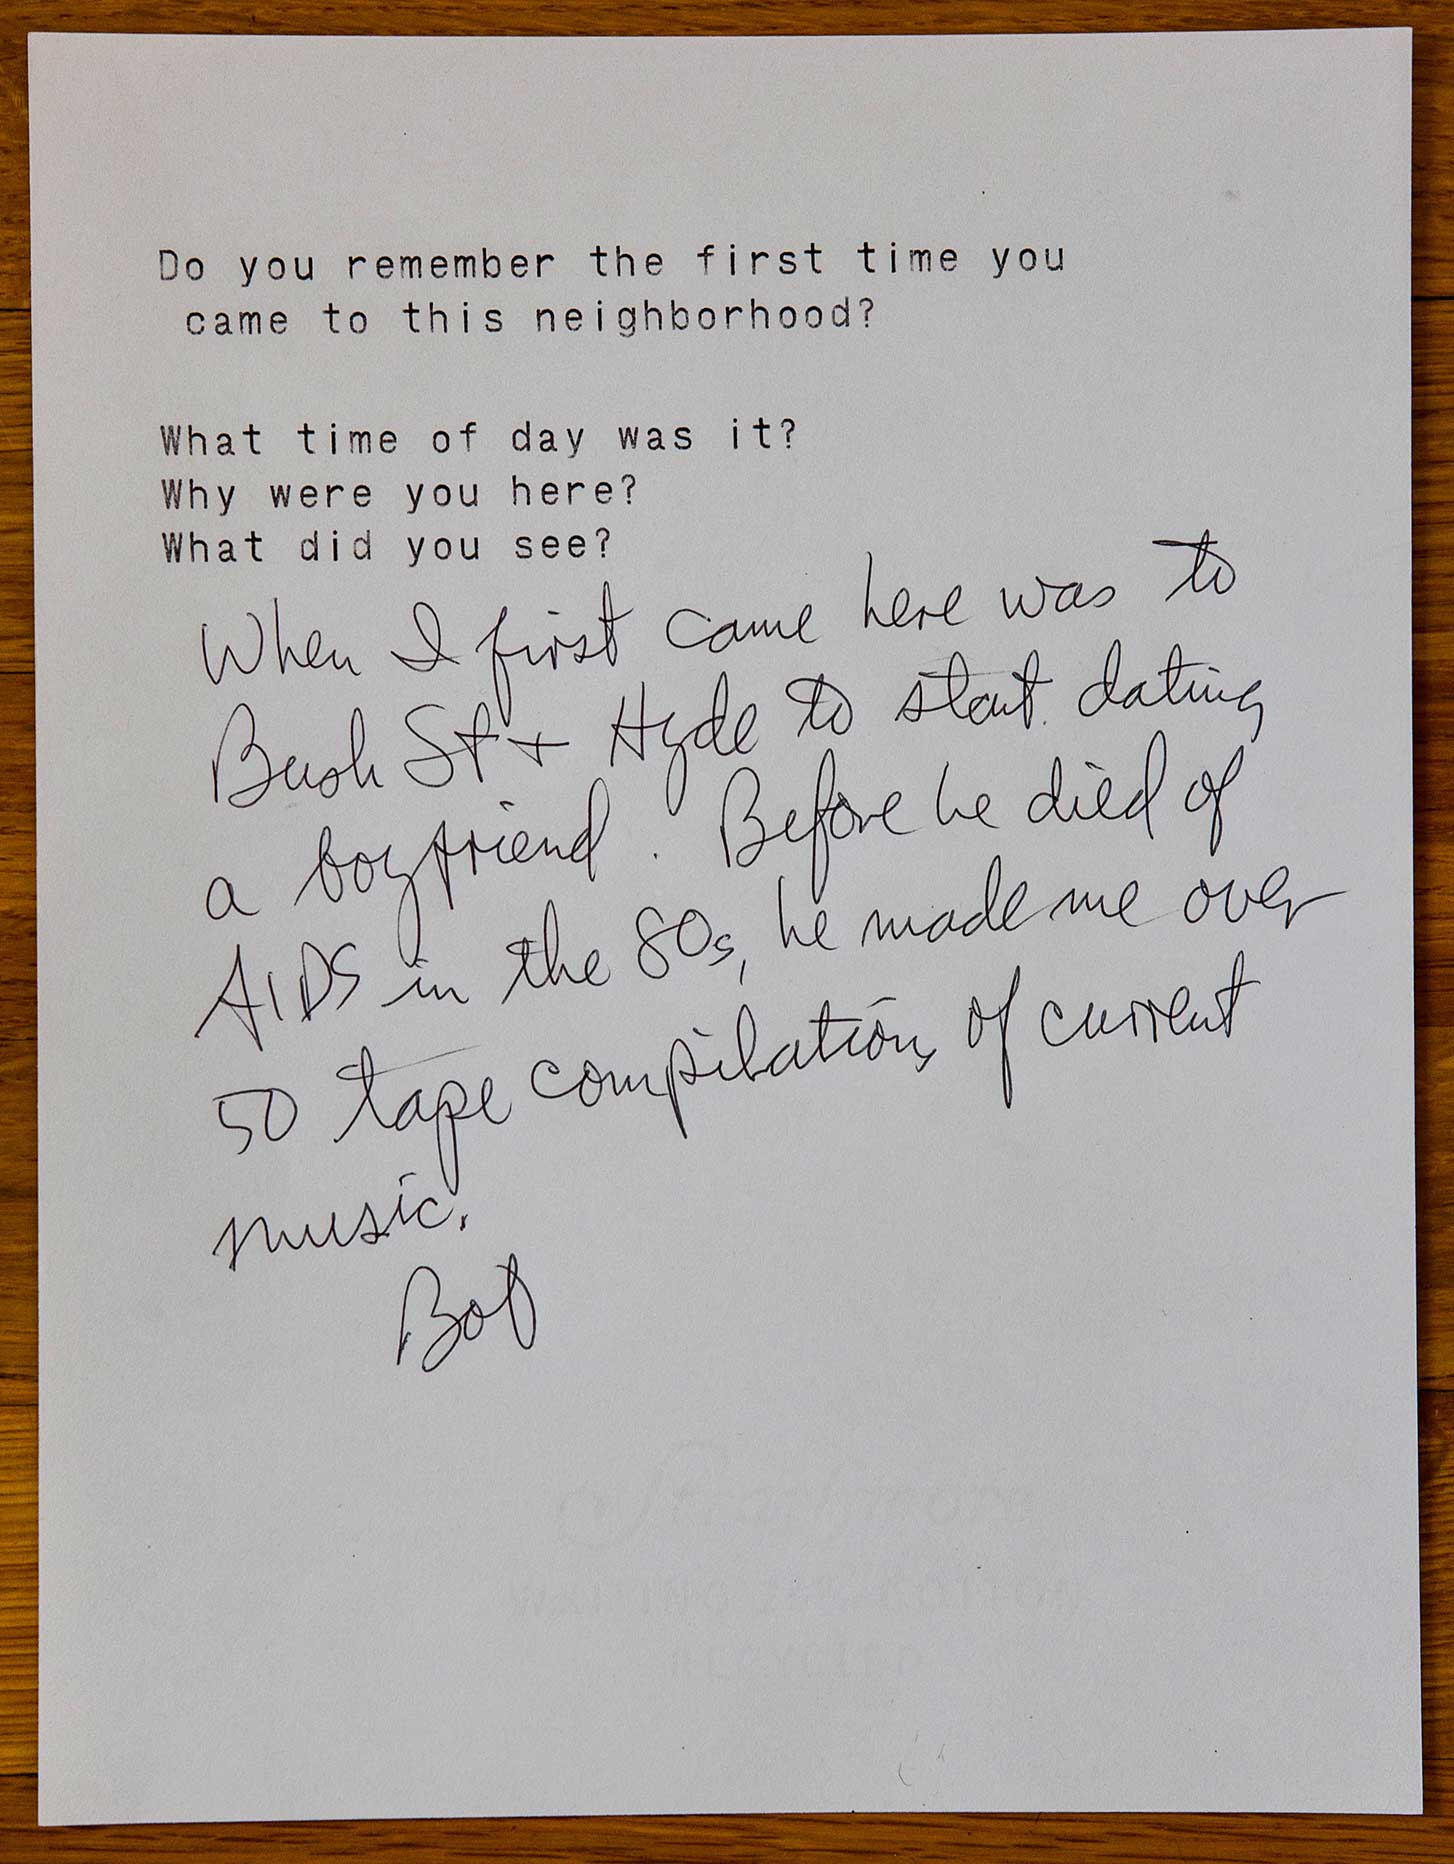 Do you remember the first time you
came to this neighborhood?
What time of day was it?
Why were you here?
What did you see?
When I first came here was to
Bush St + Hyde to start dating
a boyfriend. Before he died of
AIDS in the 80s, he made me over
50 tape compilations of current
music.
Bob